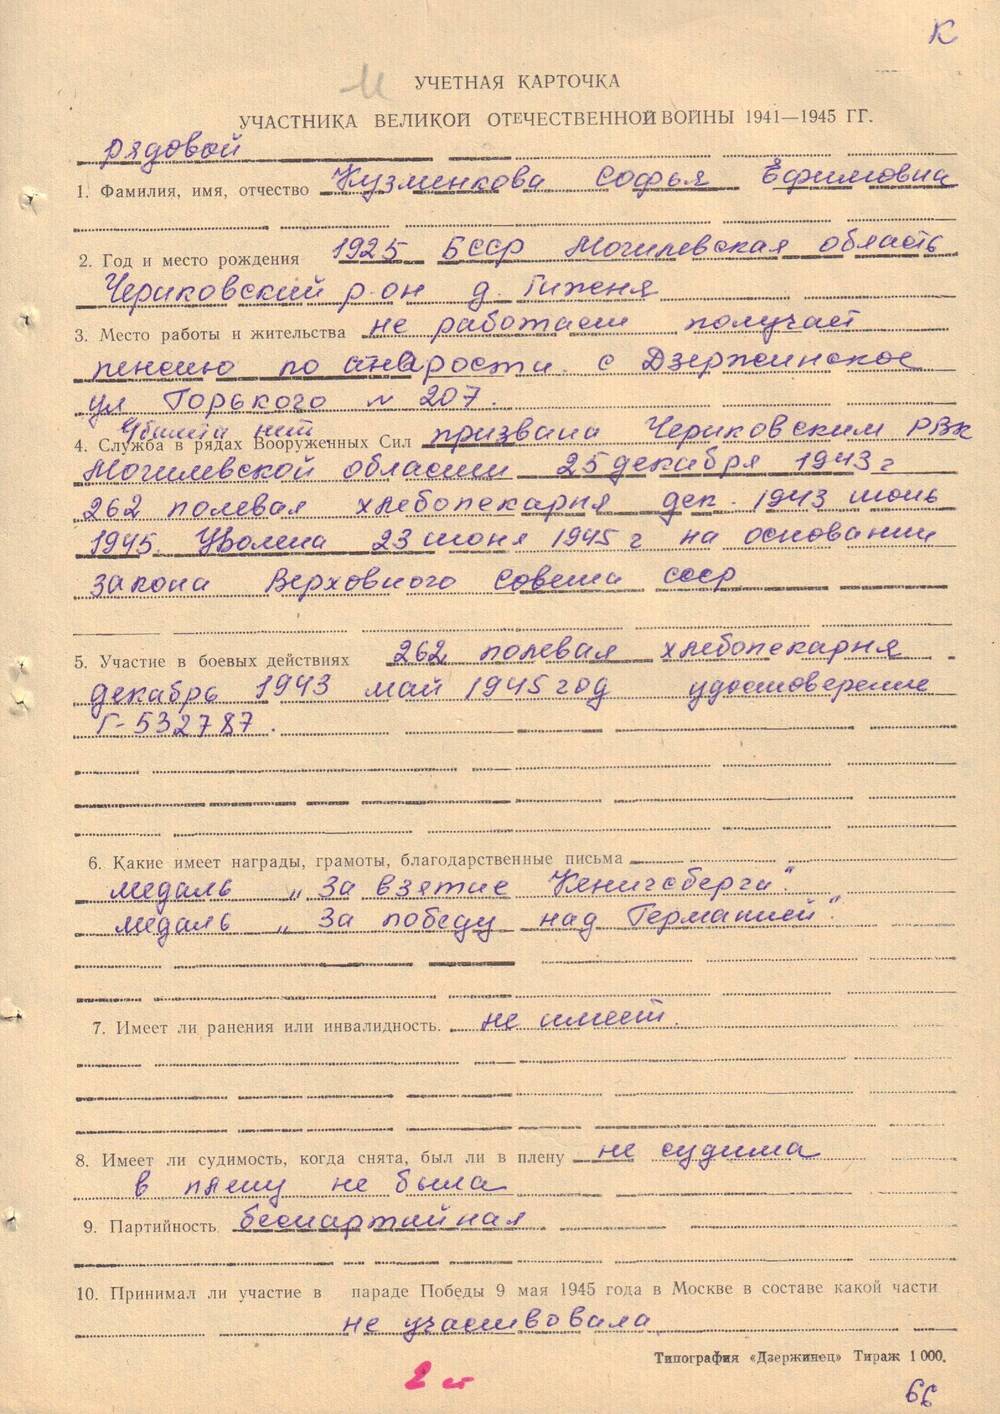 К
и
УЧЕТНАЯ КАРТОЧКА
УЧАСТНИКА ВЕЛИКОЙ ОТЕЧЕСТВЕННОЙ ВОЙНЫ 1941—1945 ГГ.
рядовой
1. Фамилия, имя, отчество Кузменкова Софья Ефимовна
2. Год и место рождения 1925 БССР Могилевская область
Чериковский р-он д. Гиженя
3. Место работы и жительства не работает получает
пенсию по старости. с Дзержинское
ул Горького № 207.
билета нет
4. Служба в рядах Вооруженных Сил призвана Чериковским РВК
Могилевской области 25 декабря 1943 г
262 полевая хлебопекарня дек. 1943 июнь
1945. Уволена 23 июня 1945 г на основании
закона Верховного Совета ссср
5. Участие в боевых действиях 262 полевая хлебопекарня
декабрь 1943 май 1945 год удостоверение
Г-532787.
6. Какие имеет награды, грамоты, благодарственные письма
медаль „За взятие Кенигсберга".
медаль „За победу над Германией".
7. Имеет ли ранения или инвалидность. не имеет.
8. Имеет ли судимость, когда снята, был ли в плену не судима
в плену не была
9. Партийность беспартийная
10. Принимал ли участие в параде Победы 9 мая 1945 года в Москве в составе какой части
не участвовала
Типография «Дзержинец» Тираж 1000.
2 ст
66